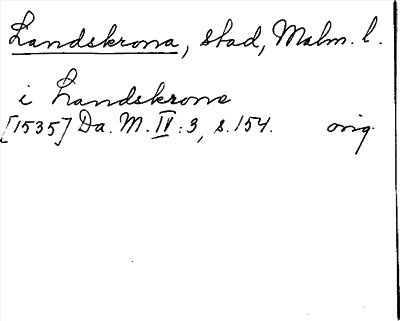 Landskrona, stad, Malm. l.
i Landskrone
[1535] Da. M. IV : 3, s. 154. orig.